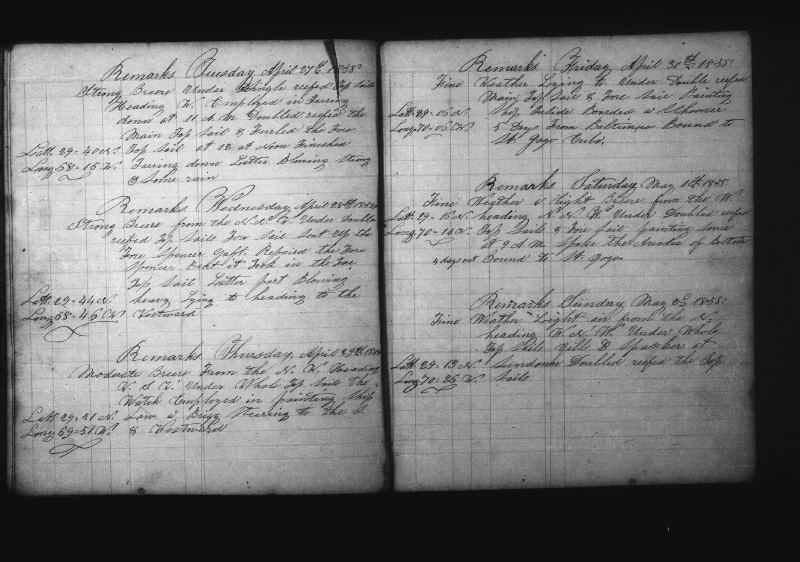 Remarks Tuesday April 27th 1858
Strong Breeze Under Single reefed Top Sails
Heading W. Employed in Tarring
down at 11 A.M Doubled reefed the
Main Top Sail & Furled the Fore
Latt. 29-40 N. Top Sail at 12 at Noon Finished
Long 68-15 W. Tarring down Latter Blowing Strong
& Some rain
Remarks Wednesday April 28th 1858
Strong Breeze from the Under Double
reefed Top Sails Fore Sail Sent Up the
Fore Spencer Gaft. Repaired the Fore
Spencer Took in the Fore
Top Sail Latter part Blowing
Latt. 29-44 N heavy Lying to heading to the
Long 68-46 W Westward
Remarks Thursday April 29th 1858
Moderate Breeze From the N. W Heading
Under Whole Top Sail The
Watch Employed in painting Ship
Latt. 29-21 N. Saw a Brigg Steering to the
Long 69-51 W. & Westward
Remarks Friday April 30th 1858
Fine Weather Lying to Under Double reefed
Main Top Sail & Fore Sail Painting
Latt 29-06 N Ship Inside Boarded a Schooner
Long 70-06 W 5 Days From Baltimore Bound to
St. Gago Cuba.
Remarks Saturday May 1st 1858
Fine Weather & light Breeze from the W.
Latt. 29-15 N heading N.N.W. Under Doubled reefed
Long 70-18 W. Top Sails & Fore Sail painting Some
at 9 A.M. Spoke the Arcadia of Boston
4 days out Bound to St. Gago
Remarks Sunday May 2d 1858
Fine Weather Light air from the N.
heading W.N.W. Under Whole
Top Sails Gibb & Spanker at
Latt. 29-13 N Sundown Doubled reefed the Top
Long 70-26 W. Sails